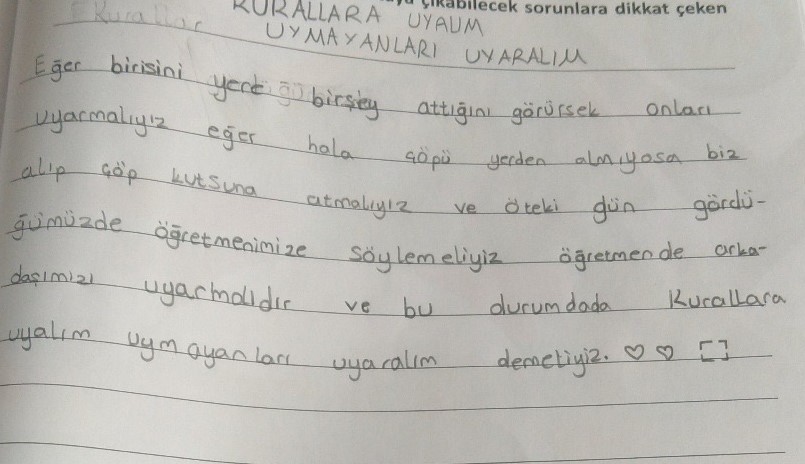 çıkabilecek sorunlara dikkat çeken
Kurallar KURALLARA UYALIM
UYMAYANLARI UYARALIM
Eğer birisini yere birşey attığını görürsek onları
uyarmalıyız eğer hala çöpü yerden almıyosa biz
alıp çöp kutsuna atmalıyız ve öteki gün gördü-
ğümüzde öğretmenimize söylemeliyiz öğretmen de arka-
daşımızı uyarmalıdır ve bu durumdada Kurallara
uyalım uymayanları uyaralım demeliyiz. ♡ ♡ [ ]